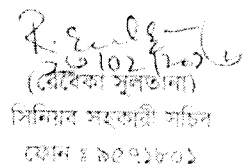 (রেবেকা সুলতানা)
সিনিয়র সহকারী সচিব
ফোন ঃ ৯৫৭১৮০১